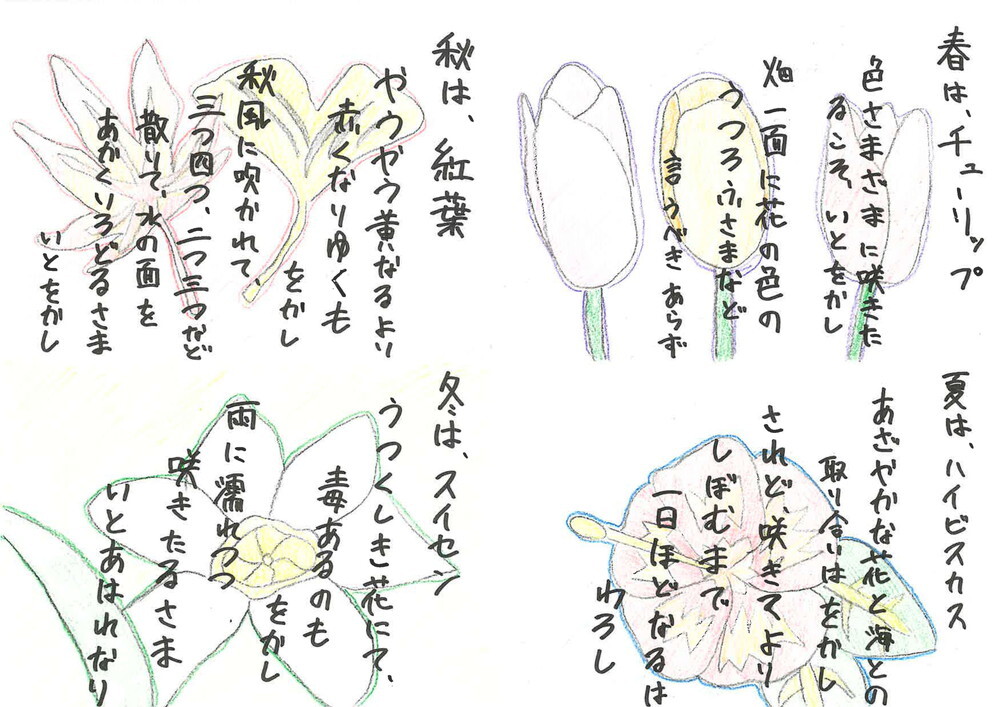 春は、チューリップ
色さまざまに咲きた
るこそ、いとをかし
畑一面に花の色の
うつろふさまなど
言うべきあらず
夏は、ハイビスカス
あざやかな花と海との
取り合いはをかし
されど、咲きてより
しぼむまで
一日ほどなるは
わろし
秋は、紅葉
やうやう黄なるより
赤くなりゆくも
をかし
秋風に吹かれて、
三つ四つ、二つ三つなど
散りて、水の面を
あかくいろどるさま
いとをかし
冬は、スイセン
うつくしき花にて、
毒あるのも
をかし
雨に濡れつつ
咲きたるさま
いとあはれなり